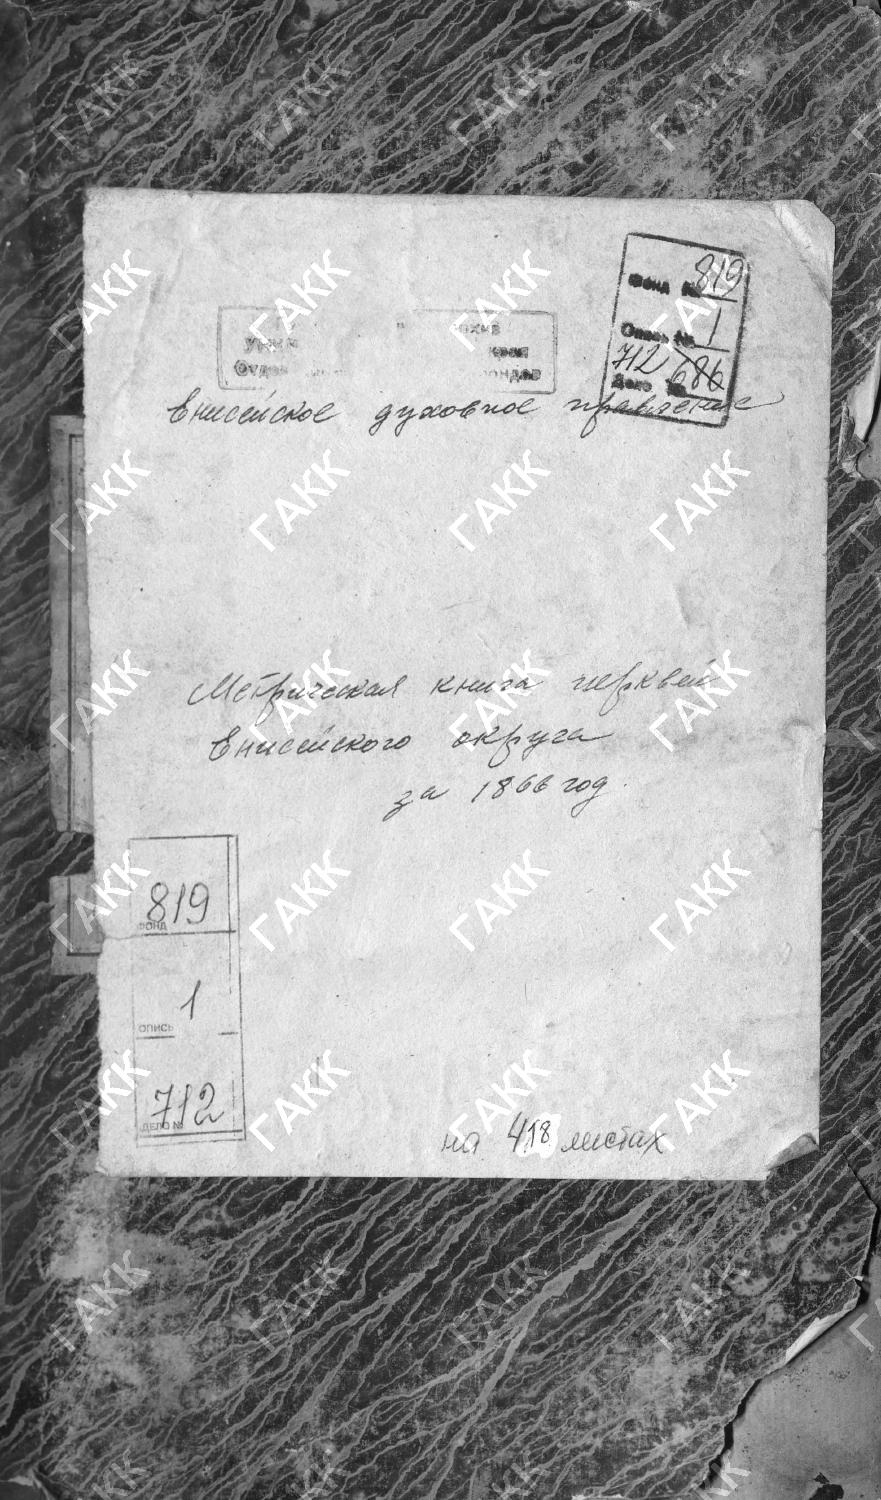 Фонд № 819
Опись № 1
712 686
Дело №
Отдел фондов
Енисейское духовное правление
Метрическая книга церквей
Енисейского округа
за 1866 год.
819
ФОНД
1
ОПИСЬ
712
ДЕЛО №
на 418 листах
ГАКК